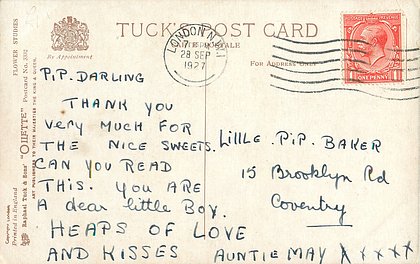 TUCK'S POST CARD
CARTE POSTALE
By Appointment
FOR ADDRESS ONLY
LONDON N.W.1
28 SEP
1927
P.P. DARLING
THANK YOU
very MUCH FOR
THE NICE SWEETS.
CAN YOU READ
THIS. YOU ARE
A dear little Boy.
HEAPS OF LOVE
AND KISSES
AUNTIE MAY X X X X X
LiTTLE. P.i.P. BAKER
15 Brooklyn Rd
Coventry
FLOWER STUDIES
Raphael Tuck & Sons' "OILETTE"
ART PUBLISHERS TO THEIR MAJESTIES THE KING & QUEEN.
Copyright London.
Printed in England